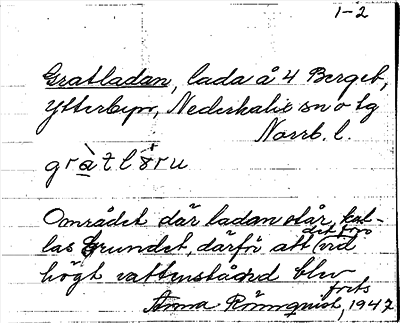 1-2
Gratladan, lada å 4 Berget,
Ytterbyn, Nederkalix sn o tg
Norrb. l.
Området där ladan står, kal-
las Grundet, därför att det förr vid
högt vattenstånd blev
forts
Anna Rönnqvist, 1947